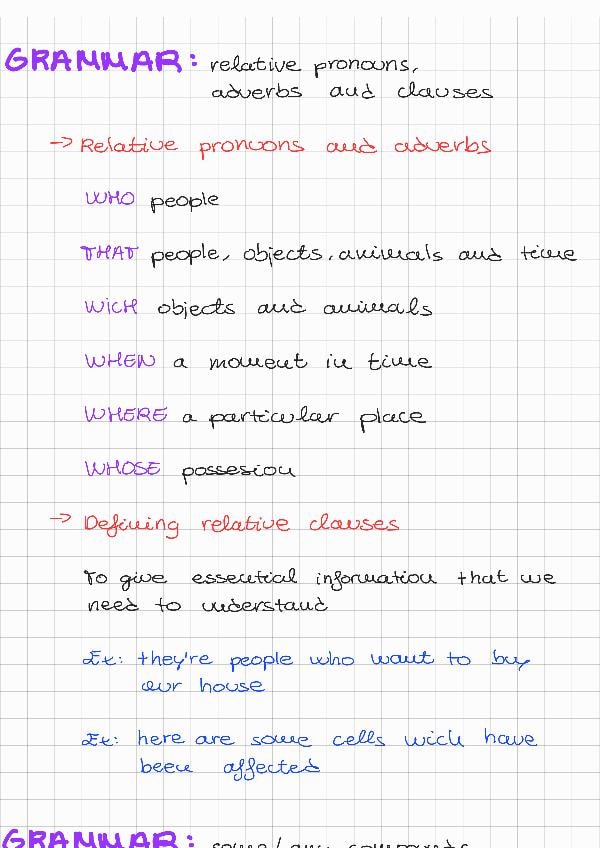 GRAMMAR: relative pronouns,
adverbs and clauses
→ Relative pronuons and adverbs
WHO people
THAT people, objects, animals and time
WiCH objects and animals
WHEN a moment in time
WHERE a particular place
WHOSE possesion
→ Defining relative clauses
To give essential information that we
need to understand
Ex: they're people who want to buy
our house
Ex: here are some cells wich have
been affected
GRAMMAR: some/any